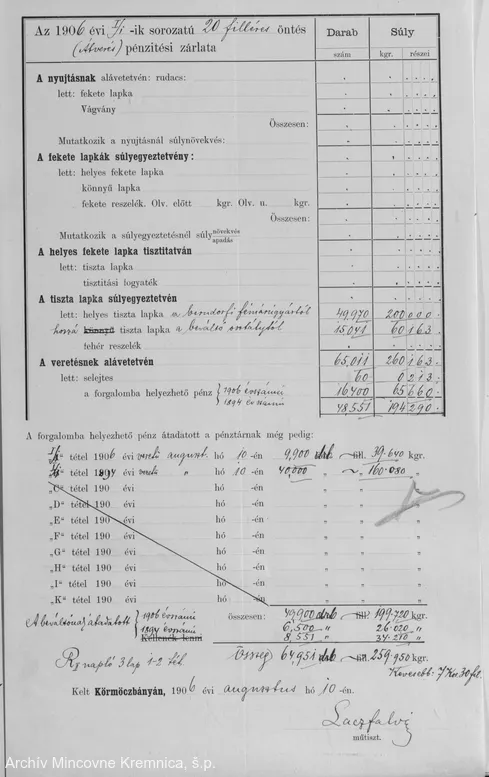 Az 1906 évi I/i -ik sorozatú 20 filléres öntés
(Átverés) pénzitési zárlata
Darab Súly
szám kgr. részei
A nyujtásnak alávetetvén: rudacs:
lett: fekete lapka
Vágvány
Összesen:
Mutatkozik a nyujtásnál súlynövekvés:
A fekete lapkák súlyegyeztetvény:
lett: helyes fekete lapka
könnyű lapka
fekete reszelék. Olv. előtt kgr. Olv. u. kgr.
Összesen:
Mutatkozik a súlyegyeztetésnél súly növekvés
apadás
A helyes fekete lapka tisztitatván
lett: tiszta lapka
tisztitási fogyaték
A tiszta lapka súlyegyeztetvén
lett: helyes tiszta lapka a berndorfi fémárúgyártól 49,970 200 000
hozzá könnyű tiszta lapka a beváltó osztálytól 15,041 60 163
fehér reszelék
A veretésnek alávetetvén 65,011 260 163
lett: selejtes 60 0 213
a forgalomba helyezhető pénz { 1906 évszámú 16400 65 660
1894 évszámú 48551 194 290
A forgalomba helyezhető pénz átadatott a pénztárnak még pedig:
„A" tétel 1906 évi veretü august. hó 10 -én 9,900 drb fill. 39·640 kgr.
„B" tétel 1894 évi veretü " hó 10 -én 40,000 " 160·080 "
„C" tétel 190 évi hó -én " "
„D" tétel 190 évi hó -én " "
„E" tétel 190 évi hó -én " "
„F" tétel 190 évi hó -én " "
„G" tétel 190 évi hó -én " "
„H" tétel 190 évi hó -én " "
„I" tétel 190 évi hó -én " "
„K" tétel 190 évi hó -én " "
összesen: 49,900 drb fill. 199·720 kgr.
A beváltónaj átadatott { 1906 évszámú 6,500 " 26·020 "
1894 évszámú 8,551 " 34·210 "
Kellenék lenni
Rz napló 3 lap 1-2 tét. Összeg 64,951 drb fill. 259·950 kgr.
Kevesebb: 7/Kor. 30 fil.
Kelt Körmöczbányán, 1906 évi augusztus hó 10 -én.
Laczfalvi
műtiszt.
Archív Mincovne Kremnica, š.p.